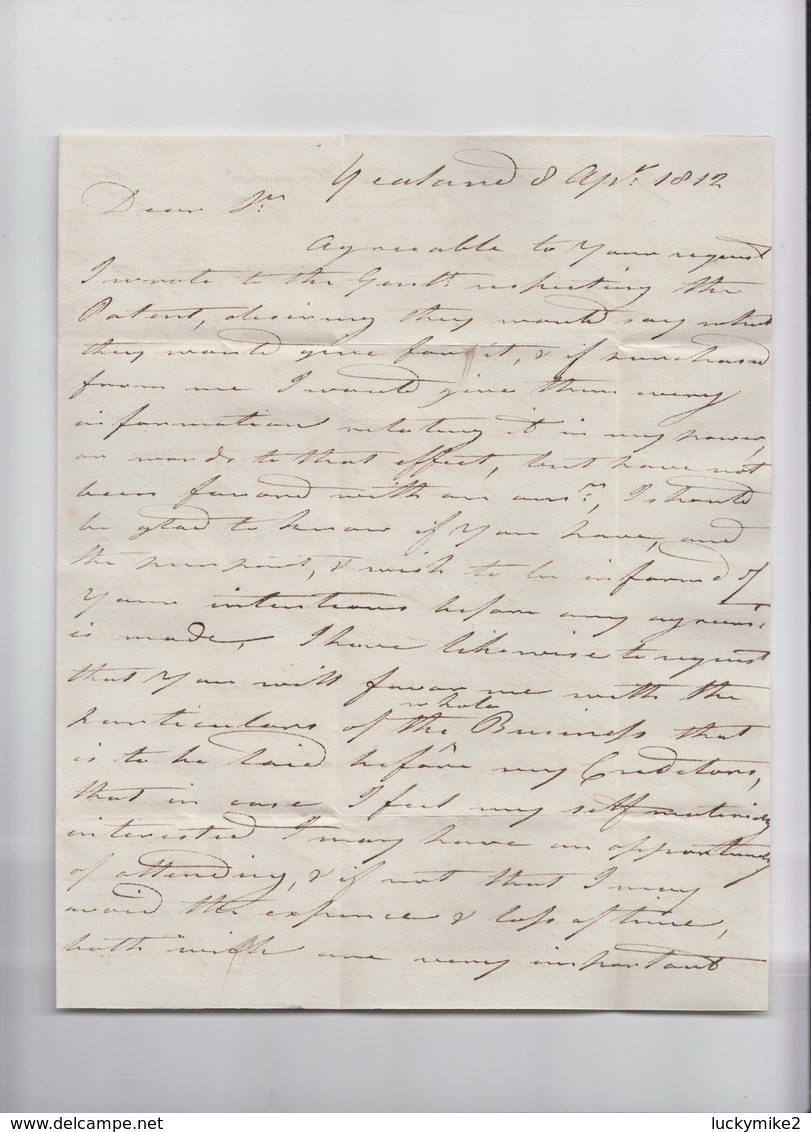 Yealand 8 Apr. 1812
Dear Sr.
Agreeable to Your request
I wrote to the Gentn. respecting the
Patent, desiring they would say what
they would give for it, & if purchased
from me I would give them every
information relating it in my power,
or words to that effect, but have not
been favord with an ansr., I should
be glad to know if You have, and
the purport, & wish to be informed of
Your intentions before any agreemt.
is made, I have likewise to request
that You will favor me with the
whole
particulars of the Business that
is to be laid before my Creditors,
that in case I feel my self materialy
interested I may have an opportunity
of attending, & if not that I may
avoid the expence & loss of time,
both wich are very important
luckymike2